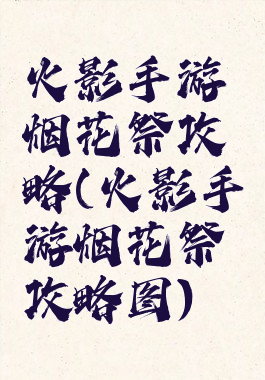 火影手游
烟花祭攻
略(火影手
游烟花祭
攻略图)